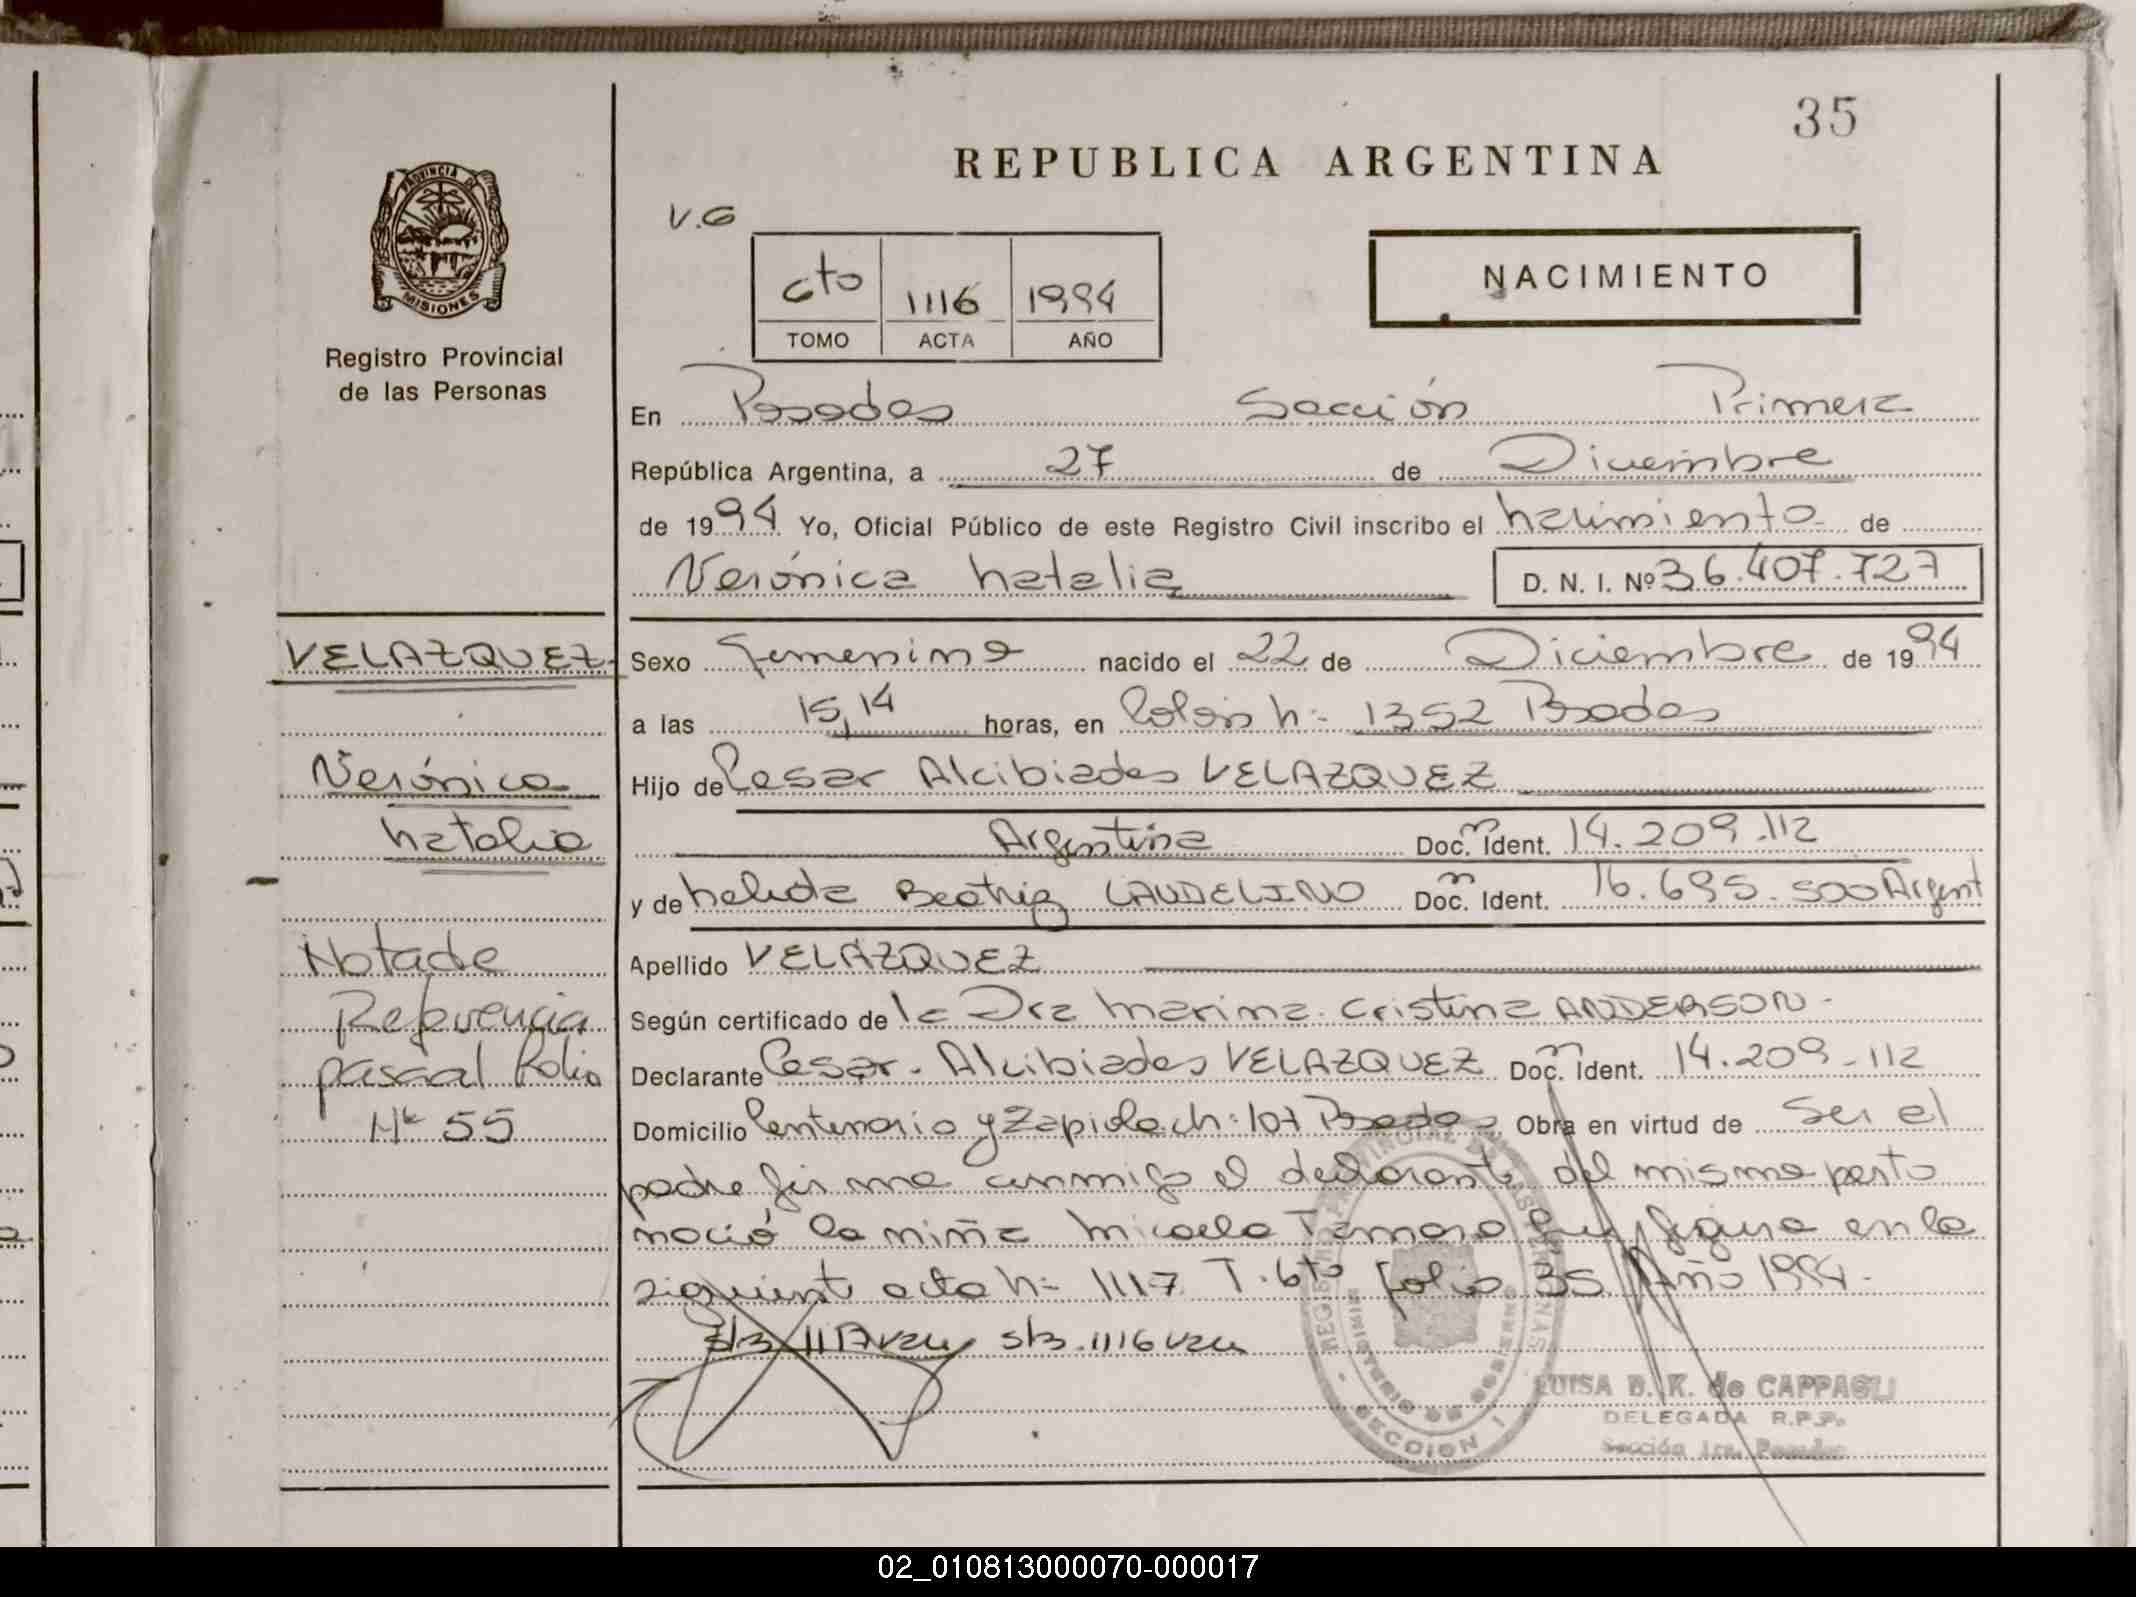 35
REPUBLICA ARGENTINA
V.G
PROVINCIA DE
MISIONES
Registro Provincial
de las Personas
6to 1116 1994
TOMO ACTA AÑO
NACIMIENTO
En Posadas Sección Primera
República Argentina, a 27 de Diciembre
de 1994 Yo, Oficial Público de este Registro Civil inscribo el nacimiento de
Verónica Natalia D. N. I. Nº 36.407.727
VELAZQUEZ
Verónica
Natalia
Nota de
Referencia
pasa al folio
Nº 55
Sexo Femenino nacido el 22 de Diciembre de 1994
a las 15,14 horas, en Colón Nº 1352 Posadas
Hijo de Cesar Alcibiades VELAZQUEZ
Argentina Doc. Ident. 14.209.112
y de Nelida Beatriz LAUDELINO Doc. Ident. 16.695.500 Argent
Apellido VELAZQUEZ
Según certificado de la Dra Marina Cristina ANDERSON
Declarante Cesar Alcibiades VELAZQUEZ Doc. Ident. 14.209.112
Domicilio Centenario y Zapiola ch: 107 Posadas Obra en virtud de ser el
padre firma conmigo el declarante del mismo parto
nació la niña Micaela Tamara que figura en la
siguiente acta Nº 1117 T. 6to folio 35 Año 1994.
s/b 1116 vale
REGISTRO PROVINCIAL DE LAS PERSONAS
MINISTERIO DE GOBIERNO
SECCION 1
LUISA B. K. de CAPPAGLI
DELEGADA R.P.P.
Sección 1ra. Posadas
02_010813000070-000017